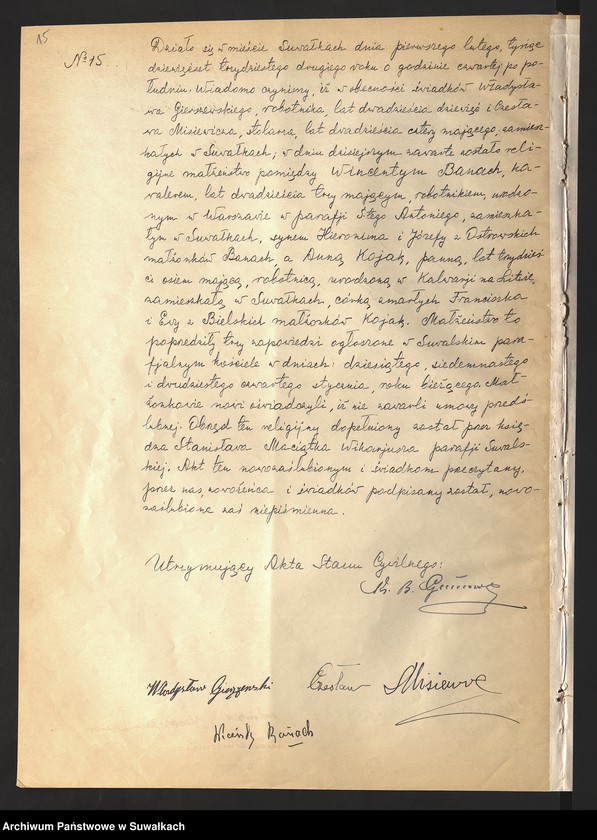 15
№ 15.
Działo się w mieście Suwałkach dnia pierwszego lutego, tysiąc
dziewięćset trzydziestego drugiego roku o godzinie czwartej po po-
łudniu. Wiadomo czynimy, iż w obecności świadków Władysła-
wa Gierszewskiego, robotnika, lat dwadzieścia dziewięć i Czesła-
wa Misiewicza, stolarza, lat dwadzieścia cztery mającego, zamiesz-
kałych w Suwałkach; w dniu dzisiejszym zawarte zostało reli-
gijne małżeństwo pomiędzy Wincentym Banach, ka-
walerem, lat dwadzieścia trzy mającym, robotnikiem, urodzo-
nym w Warszawie w parafji Śtego Antoniego, zamieszka-
łym w Suwałkach, synem Hieronima i Józefy z Ostrowskich
małżonków Banach, a Anną Kojak, panną, lat trzydzieś-
ci osiem mającą, robotnicą, urodzoną w Kalwarji na Litwie,
zamieszkałą w Suwałkach, córką zmarłych Franciszka
i Ewy z Bielskich małżonków Kojak. Małżeństwo to
poprzedziły trzy zapowiedzi ogłoszone w Suwalskim para-
fjalnym kościele w dniach: dziesiątego, siedemnastego
i dwudziestego czwartego stycznia, roku bieżącego. Mał-
żonkowie nowi oświadczyli, iż nie zawarli umowy przedś-
lubnej. Obrzęd ten religijny dopełniony został przez księ-
dza Stanisława Maciątka Wikarjusza parafji Suwals-
kiej. Akt ten nowozaślubionym i świadkom przeczytany,
przez nas, nowożeńca i świadków podpisany został, nowo-
zaślubiona zaś niepiśmienna.
Utrzymujący Akta Stanu Cywilnego:
Ks. B.
Władysław Gierszewski Czesław Misiewicz
Banach
Archiwum Państwowe w Suwałkach